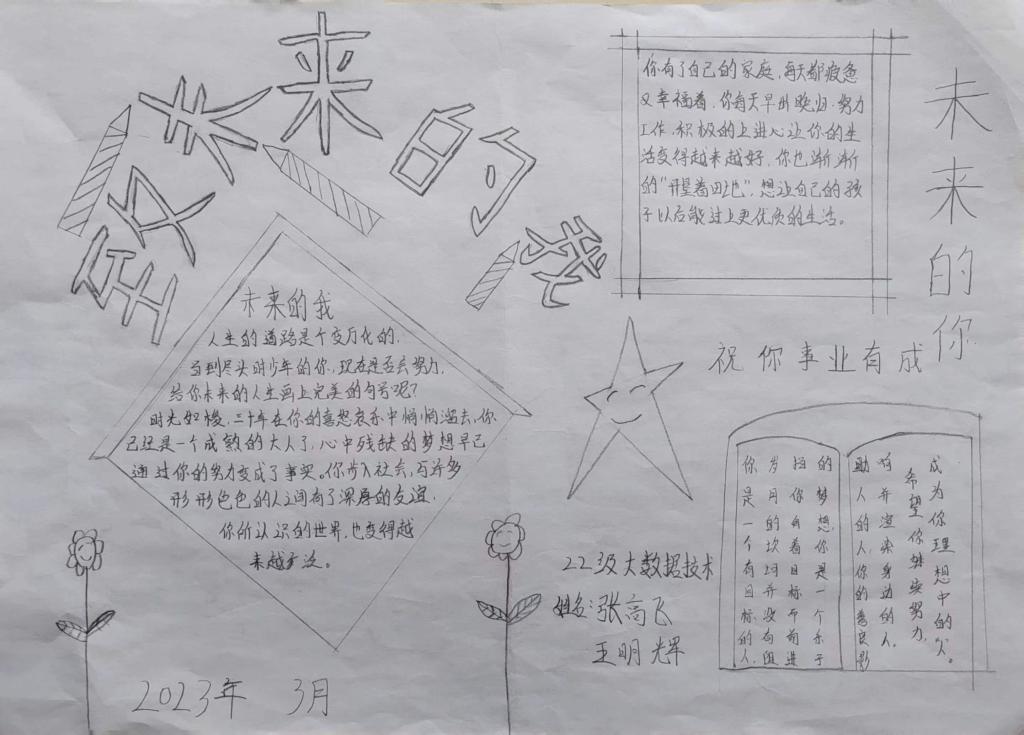 致未来的我
未来的我
人生的道路是个变万化的,
当到尽头时少年的你,现在是否会努力,
给你未来的人生画上完美的句号呢?
时光如梭,三十年在你的喜怒哀乐中悄悄溜去,你
已还是一个成熟的大人了,心中残缺的梦想早已
通过你的努力变成了事实。你步入社会,与许多
形形色色的人之间有了深厚的友谊.
你所认识的世界,也变得越
来越广泛。
2023年 3月
你有了自己的家庭,每天都疲惫
又幸福着,你每天早出晚归.努力
工作.积极的上进心让你的生
活变得越来越好,你也渐渐
的"开垦着田地",想让自己的孩
子以后能过上更优质的生活。
未来的你
祝你事业有成
你是一个有目标的人,
岁月的坎坷并没有阻
扭你自着目标而前进
的梦想,你是一个乐于
助人的人,你的善良影
响并渲染身边的人,
希望你继续努力,
成为你理想中的人。
22级大数据技术
姓名:张高飞
王明辉